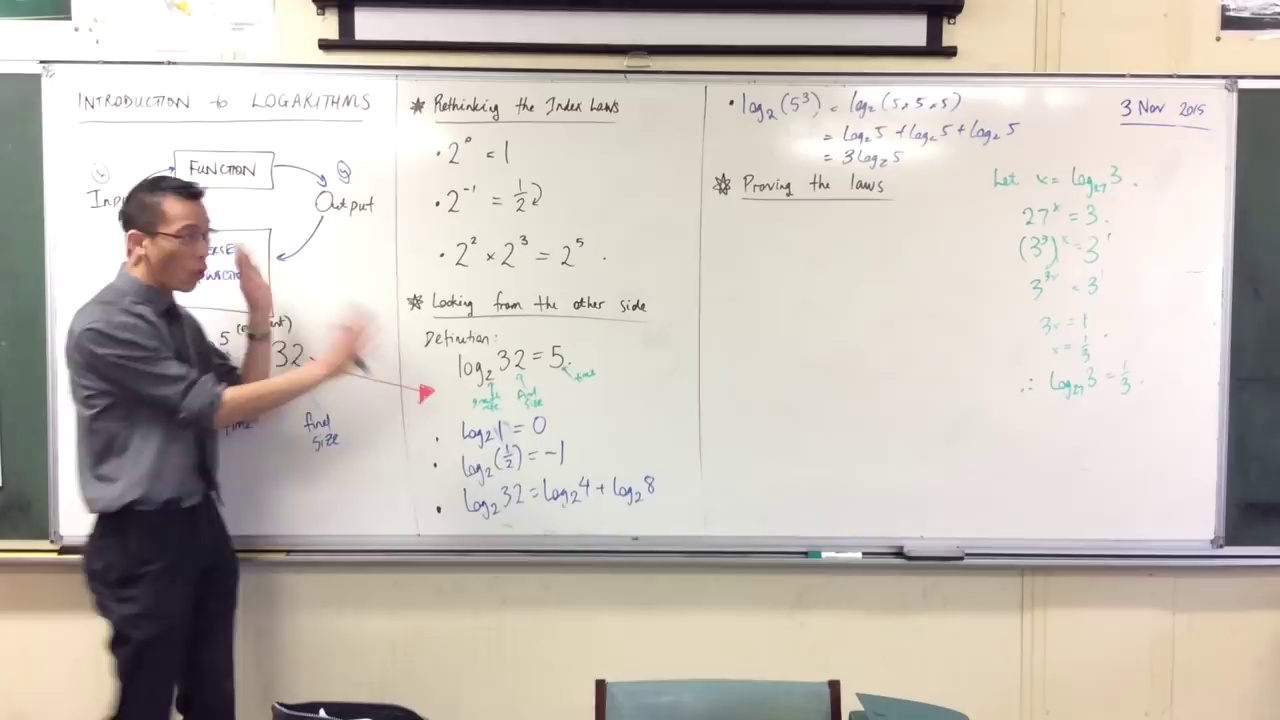 INTRODUCTION to LOGARITHMS
FUNCTION
Output
5
32
time
final
size
* Rethinking the Index Laws
• 2⁰ = 1
• 2⁻¹ = 1/2
• 2² × 2³ = 2⁵ .
* Looking from the other side
Definition:
log₂ 32 = 5.
final size
time
• log₂ 1 = 0
• log₂ (1/2) = -1
• log₂ 32 = log₂ 4 + log₂ 8
• log₂ (5³) = log₂ (5×5×5)
= log₂ 5 + log₂ 5 + log₂ 5
= 3 log₂ 5
* Proving the laws
3 Nov 2015
Let x = log₂₇ 3 .
27ˣ = 3 .
(3³)ˣ = 3¹
3³ˣ = 3¹
3x = 1
x = 1/3 .
∴ log₂₇ 3 = 1/3 .